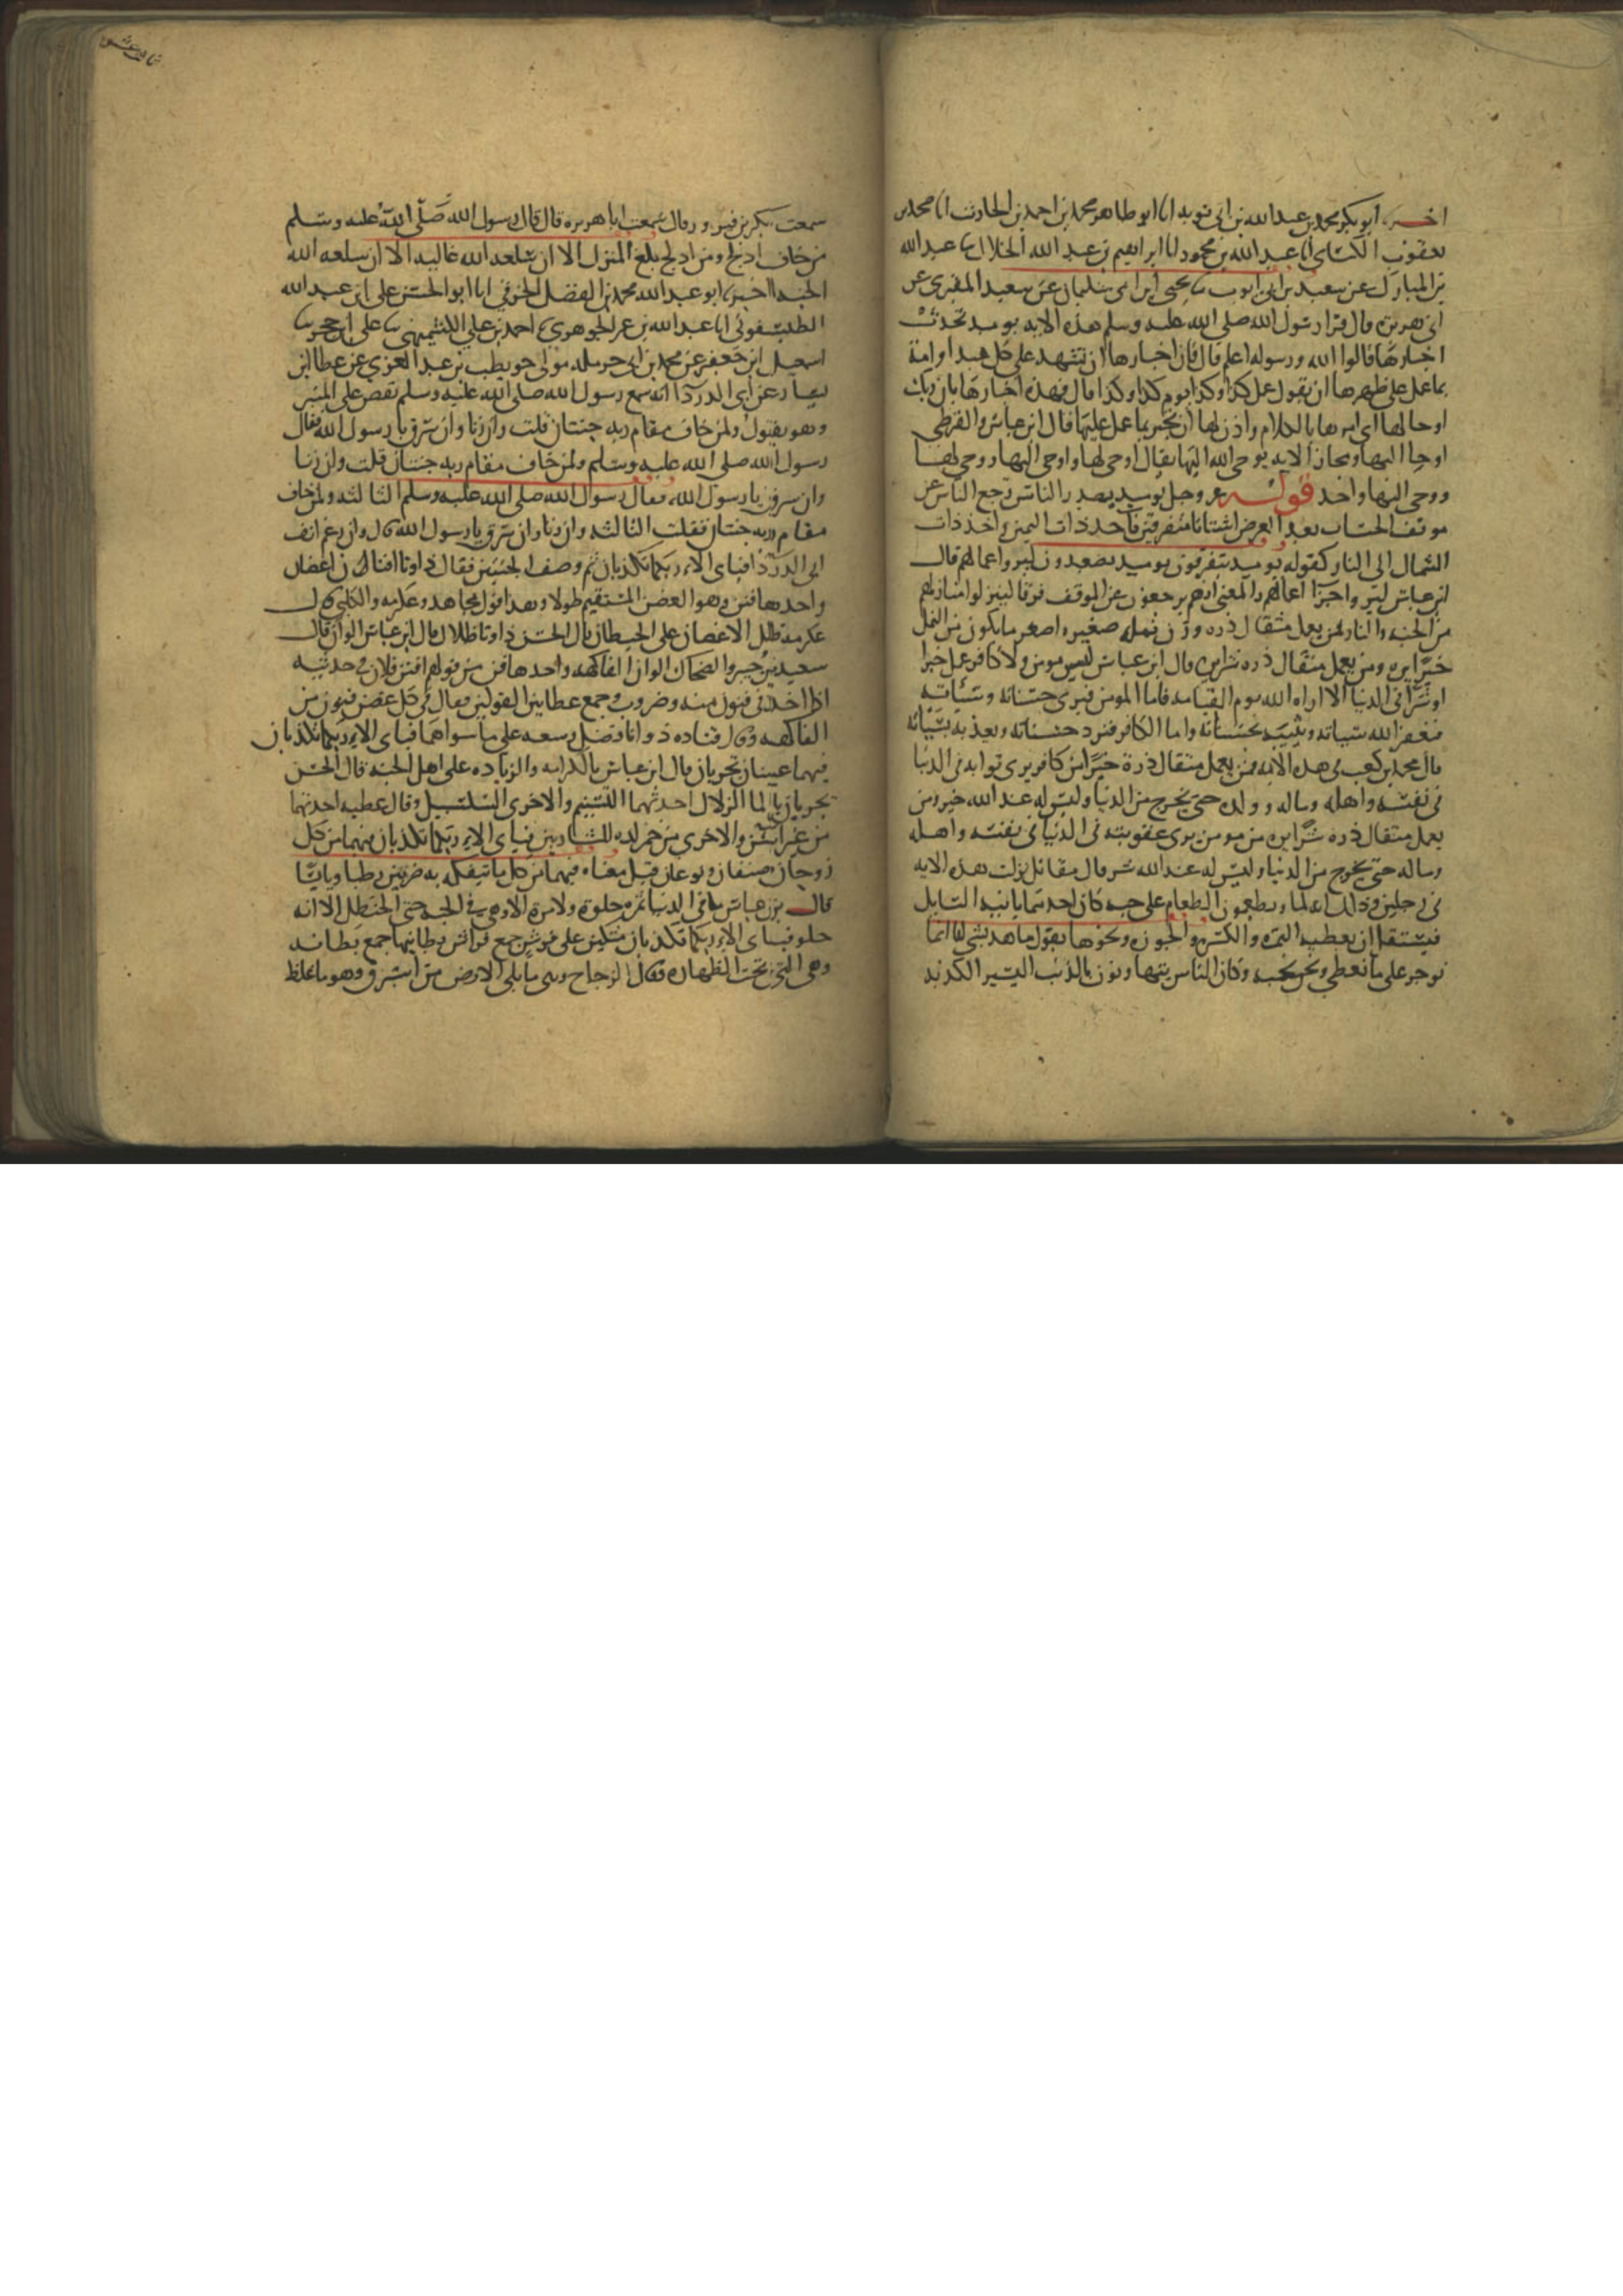 اخبرنا ابو بكر محمد بن عبد الله بن ابى توبه انا ابو طاهر محمد بن احمد بن الحارث انا محمد بن
يعقوب الكسائى انا عبد الله بن محمود انا ابراهيم بن عبد الله الخلال نا عبد الله
بن المبارك عن سعيد بن ابى ايوب نا يحيى ابن ابى سليمان عن سعيد المقبرى عن
ابى هريرة قال قرا رسول الله صلى الله عليه وسلم هذه الايه يوميد تحدث
اخبارها قالوا الله ورسوله اعلم قال فان اخبارها ان تشهد على كل عبد او امة
بما عمل على ظهرها ان يقول عمل كذا وكذا يوم كذا وكذا قال فهذه اخبارها بان ربك
اوحا لها اى امرها بالكلام واذن لها ان تخبر بما عمل عليها قال ابن عباس والقرظى
اوحا اليها ومجاز الايه يوحى الله اليها يقال اوحى لها واوحى اليها ووحى لها
ووحى اليها واحد قوله عز وجل يوميد يصدر الناس يرجع الناس عن
موقف الحساب بعد العرض اشتاتا متفرقين فآخذ ذات اليمين وآخذ ذات
الشمال الى النار كقوله يوميد يتفرقون يوميد يصدعون ليرو اعمالهم قال
ابن عباس ليرو اجزآ اعمالهم والمعنى انهم يرجعون عن الموقف فرقا لينزلوا منازلهم
من الجنه والنار فمن يعمل مثقال ذره وزن نمله صغيره اصغر ما يكون من النمل
خيرا يره ومن يعمل مثقال ذره شرا يره قال ابن عباس ليس مومن ولا كافر عمل خيرا
او شرا فى الدنيا الا اراه الله يوم القيامه فاما المومن فيرى حسناته وسيئاته
فيغفر الله سياته ويثيبه بحسناته واما الكافر فيرد حسناته ويعذبه بسياته
قال محمد بن كعب فى هذه الايه فمن يعمل مثقال ذرة خيرا من كافر يرى ثوابه فى الدنيا
فى نفسه واهله وماله وولده حتى يخرج من الدنيا وليس له عند الله خير ومن
يعمل مثقال ذره شرا يره من مومن يرى عقوبته فى الدنيا فى نفسه واهله
وماله حتى يخرج من الدنيا وليس له عند الله شر قال مقاتل نزلت هذه الايه
فى رجلين وذلك انه لما ويطعمون الطعام على حبه كان احدهما يانيه السايل
فيستقل ان يعطيه التمره والكسره والجوزه ونحوها يقول ما هذ بشى انما
نوجر على ما نعطى ونحن نحبه وكان الناس يتهاونون بالذنب اليسير الكذبه
سمعت بكر بن فيروز قال سمعت ابا هريره قال قال رسول الله صلى الله عليه وسلم
من خاف ادلج ومن ادلج بلغ المنزل الا ان سلعه الله غاليه الا ان سلعه الله
الجنه اخبرنا ابو عبد الله محمد بن الفضل الخرقى انا ابو الحسن على ابن عبد الله
الطيسفونى انا عبد الله بن عمر الجوهرى نا احمد بن على الكشميهنى نا على ابن حجر نا
اسمعيل ابن جعفر عن محمد ابن ابى حرمله مولى حويطب بن عبد العزى عن عطا ابن
يسار عن ابى الدردآ انه سمع رسول الله صلى الله عليه وسلم يقص على المنبر
وهو يقول ولمن خاف مقام ربه جنتان قلت وان زنا وان سرق يا رسول الله فقال
رسول الله صلى الله عليه وسلم ولمن خاف مقام ربه جنتان قلت وان زنا
وان سرق يا رسول الله فقال رسول الله صلى الله عليه وسلم الثالثه ولمن خاف
مقام ربه جنتان فقلت الثالثه وان زنا وان سرق يا رسول الله قال وان رغم انف
ابى الدردا فباى الاء ربكما تكذبان ثم وصف الجنتين فقال ذواتا افنان اغصان
واحدها فنن وهو الغصن المستقيم طولا وهذا قول مجاهد وعكرمه والكلبى قال
عكرمه ظل الاغصان على الحيطان قال الحسن ذواتا ظلال قال ابن عباس الوان قال
سعيد بن جبير والضحاك الوان الفاكهه واحدها فن من قولهم افنن فلان فى حديثه
اذا اخذ فى فنون منه وضروب وجمع عطا بين القولين فقال فى كل غصن فنون من
الفاكهه وقال قتاده ذواتا فضل وسعه على ما سواهما فباى الاء ربكما تكذبان
فيهما عينان تجريان قال ابن عباس بالكرامه والزياده على اهل الجنه قال الحسن
تجريان بالما الزلال احديهما التسنيم والاخرى السلسبيل وقال عطيه احدهما
من غير اسن والاخرى من خمر لذه للشاربين فباى الاء ربكما تكذبان فيهما من كل
زوجان صنفان ونوعان قيل معناه فيهما من كل ما يتفكه به ضربين رطبا ويابسا
قال بن عباس ما فى الدنيا ثمره حلوة ولا مرة الا وهى فى الجنه حتى الحنظل الا انه
حلو فباى الاء ربكما تكذبان متكئين على فرش جمع فراش بطائنها جمع بطانه
وهى التى تحت الظهاره وقال الزجاج وهى ما يلى الارض من استبرق وهو ما غلظ